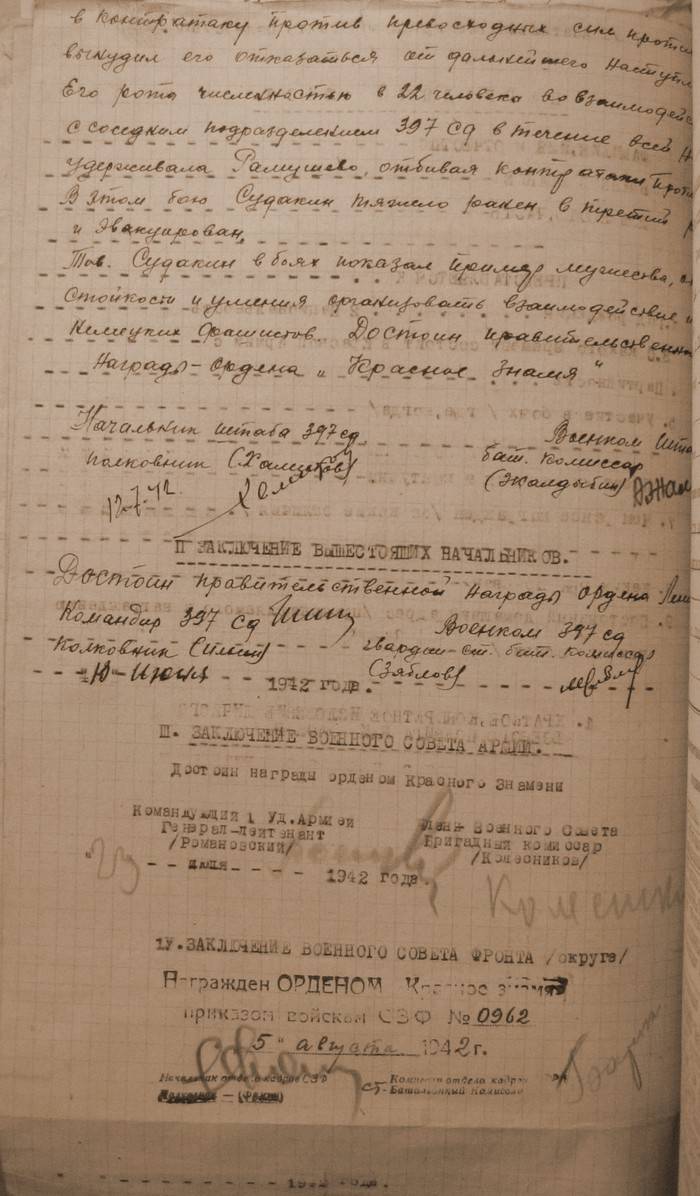 в контратаку против превосходных сил проти
вынудил его отказаться от дальнейшего наступл
Его рота численностью в 22 человека во взаимодей
с соседним подразделением 397 сд в течение всей
удерживала Рамушево, отбивая контратаки проти
В этом бою Судакин тяжело ранен в третий
и эвакуирован.
Тов. Судакин в боях показал пример мужества,
стойкости и умения организовать взаимодействие
немецких фашистов. Достоин правительственн
награды - ордена „Красное Знамя"
Начальник штаба 397 сд Военком шта
полковник (Хамитов) бат. комиссар
12.7.42. (Жалдыбин)
II ЗАКЛЮЧЕНИЕ ВЫШЕСТОЯЩИХ НАЧАЛЬНИКОВ.
Достоин правительственной награды ордена Лени
Командир 397 сд Военком 397 сд
Полковник гвардии ст. бат. комиссар
(Зяблов)
1942 года.
III. ЗАКЛЮЧЕНИЕ ВОЕННОГО СОВЕТА АРМИИ.
Достоин награды орденом Красного Знамени
Командующий 1 Уд.Армией Член Военного Совета
Генерал-лейтенант Бригадный комиссар
/Романовский/ /Колесников/
"23
июля 1942 года.
1У. ЗАКЛЮЧЕНИЕ ВОЕННОГО СОВЕТА ФРОНТА /округа/
Награжден ОРДЕНОМ Красное знамя
приказом войскам СЗФ № 0962
5" августа 1942 г.
Начальник отдела кадров СЗФ Комиссар отдела кадров
ст. Батальонный Комиссар
1942 года.